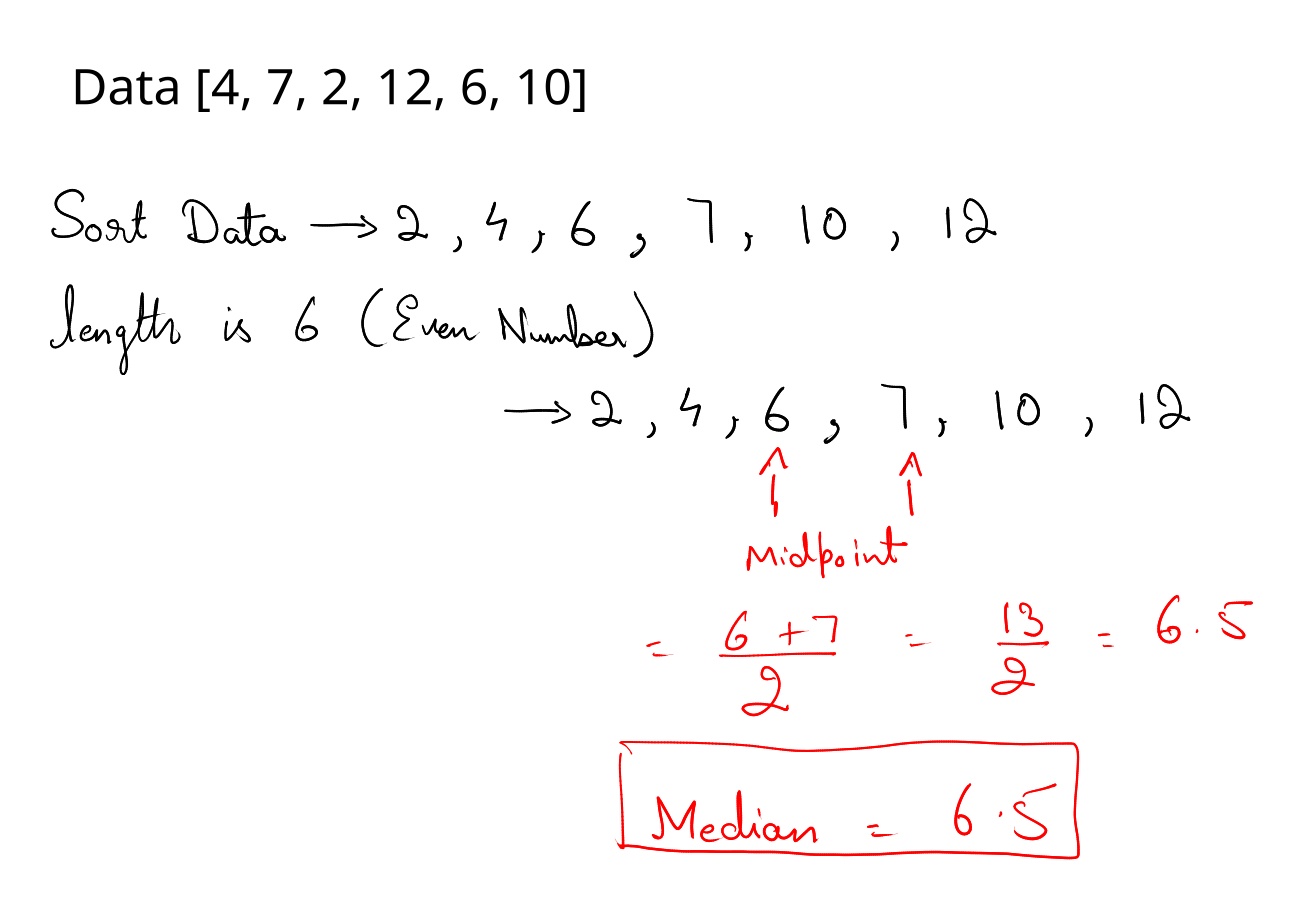 Data [4, 7, 2, 12, 6, 10]
Sort Data → 2, 4, 6, 7, 10, 12
length is 6 (Even Number)
→ 2, 4, 6, 7, 10, 12
Midpoint
= (6 + 7)/2 = 13/2 = 6.5
Median = 6.5